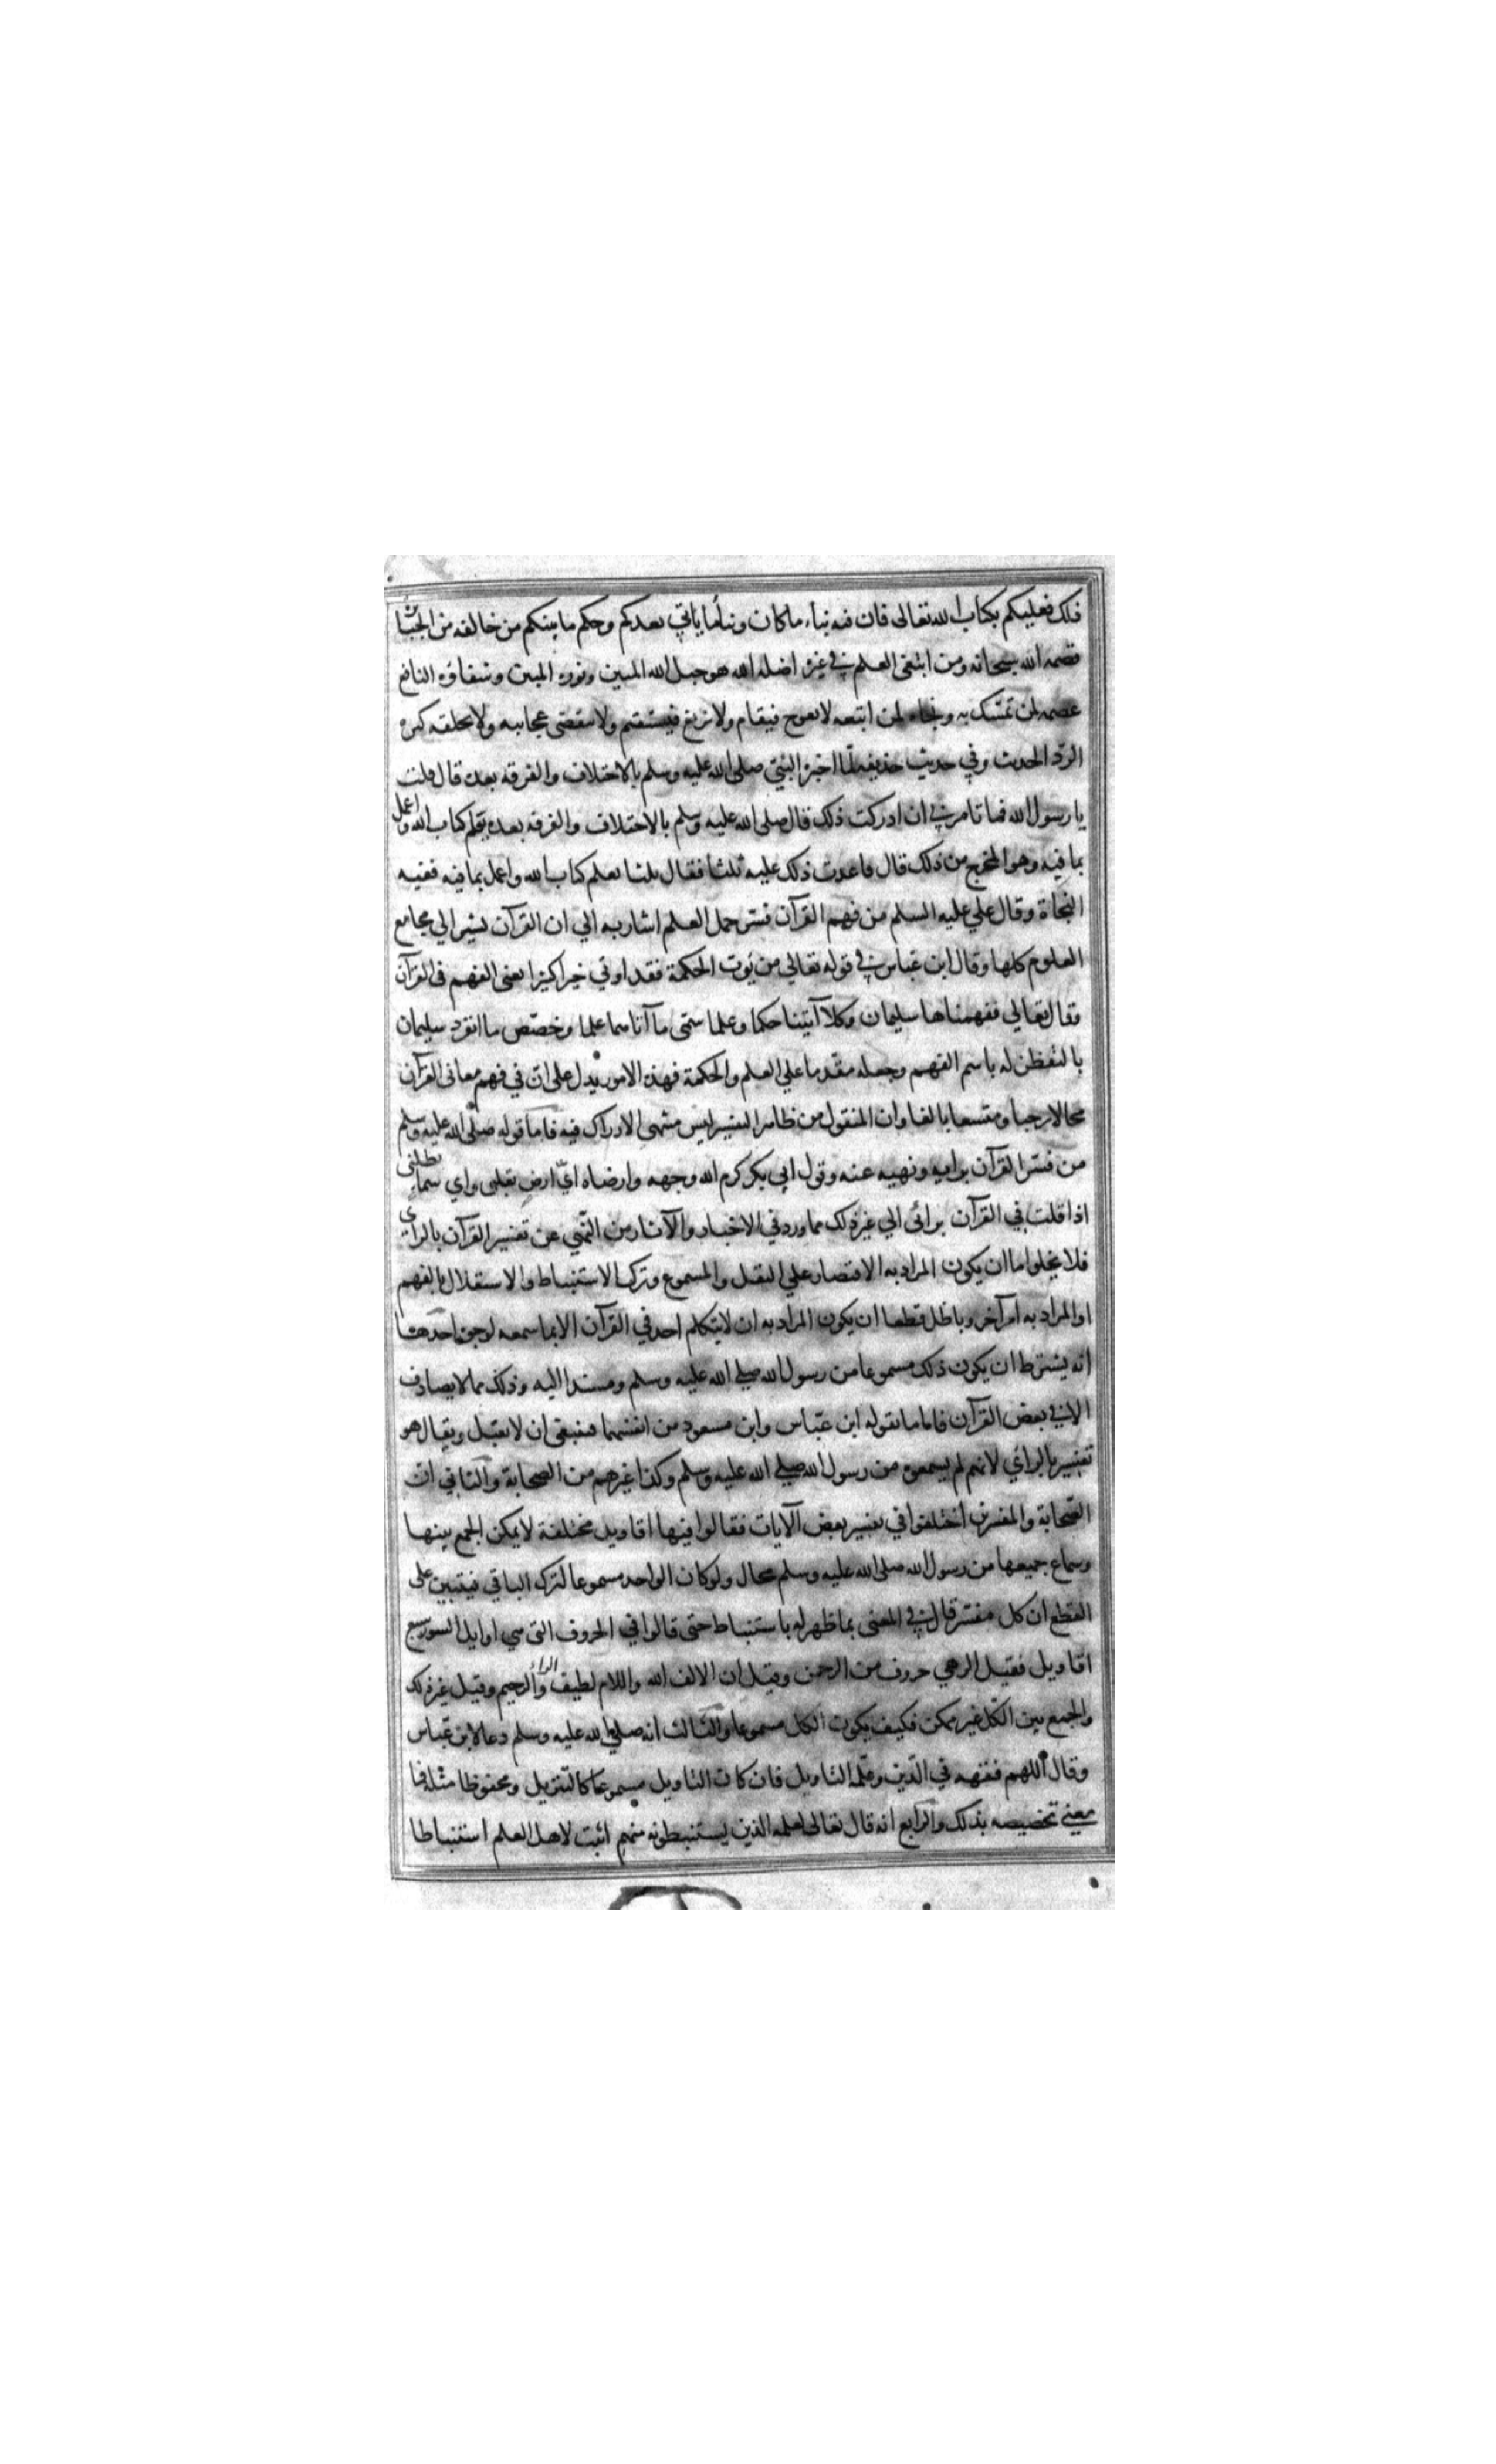 ذلك فعليكم بكتاب الله تعالى فان فيه نباء ما كان ونبأ ما ياتي بعدكم وحكم ما بينكم من خالفه من
قصمه الله سبحانه ومن ابتغى العلم في غيره اضله الله هو حبل الله المتين ونوره المبين وشفاؤه النافع
عصمه لمن تمسّك به ونجاه لمن اتبعه لا يعوج فيقام ولا يزيغ فيستقيم ولا ينقضي عجايبه ولا يخلقه كثره
الردّ الحديث وفي حديث حذيفه لمّا اخبره النبي صلى الله عليه وسلم بالاختلاف والفرقه بعده قال قلت
يا رسول الله فما تامرني ان ادركت ذلك قال صلى الله عليه وسلم بالاختلاف والفرقه بعده تعلم كتاب الله واعمل
بما فيه وهو المخرج من ذلك قال فاعدت ذلك عليه ثلثا فقال ثلثا تعلم كتاب الله واعمل بما فيه ففيه
النجاة وقال علي عليه السلم من فهم القرآن فسّر جمل العلم اشار به الي ان القرآن يشير الي مجامع
العلوم كلها وقال ابن عباس في قوله تعالي من يوت الحكمة فقد اوتي خيرا كثيرا يعني الفهم في القرآن
فقال تعالي ففهمناها سليمان وكلا آتينا حكما وعلما سمّى ما آتاهما علما وخصّص ما انفرد سليمان
بالتفطن له باسم الفهم وجعله مقدما علي العلم والحكمة فهذه الامور يدل على انّ في فهم معاني القرآن
مجالا رحبا ومتسعا بالغا وان المنقول من ظاهر التفسير ليس منتهى الادراك فيه فاما قوله صلى الله عليه وسلم
من فسّر القرآن برايه ونهيه عنه وقول ابي بكر كرم الله وجهه وارضاه ايّ ارض تقلني واي سماء تظلني
اذا قلت في القرآن برائي الي غير ذلك مما ورد في الاخبار والآثار من النّهي عن تفسير القرآن بالراي
فلا يخلوا ما ان يكون المراد به الاقتصار علي النقل والمسموع وترك الاستنباط والاستقلال بالفهم
او المراد به امر آخر وباطل قطعا ان يكون المراد به ان لا يتكلم احد في القرآن الا بما سمعه لوجوه احدها
انه يشترط ان يكون ذلك مسموعا من رسول الله صلى الله عليه وسلم ومسندا اليه وذلك مما لا يصادف
الا في بعض القرآن فاما ما يقوله ابن عبّاس وابن مسعود من انفسهما فينبغي ان لا يقبل ويقال هو
تفسير بالرائي لانهم لم يسمعوه من رسول الله صلي الله عليه وسلم وكذا غيرهم من الصحابة والثاني انّ
الصحابة والمفسرين اختلفوا في تفسير بعض الآيات فقالوا فيها اقاويل مختلفة لا يمكن الجمع بينها
وسماع جميعها من رسول الله صلى الله عليه وسلم محال ولو كان الواحد مسموعا لترك الباقي فيتبين على
القطع ان كل مفسّر قال في المعنى بما ظهر له باستنباط حتى قالوا في الحروف التي هي اوايل السور سبع
اقاويل فقيل الر هي حروف من الرحمن وقيل ان الالف الله واللام لطيف والراء الرحيم وقيل غير ذلك
والجمع بين الكل غير ممكن فكيف يكون الكل مسموعا والثالث انه صلى الله عليه وسلم دعا لابن عبّاس
وقال اللهم فقهه في الدّين وعلّمه التاويل فان كان التاويل مسموعا كالتنزيل ومحفوظا مثله فما
معني تخصيصه بذلك والرابع انه قال تعالى لعلمه الذين يستنبطونه منهم اثبت لاهل العلم استنباطا